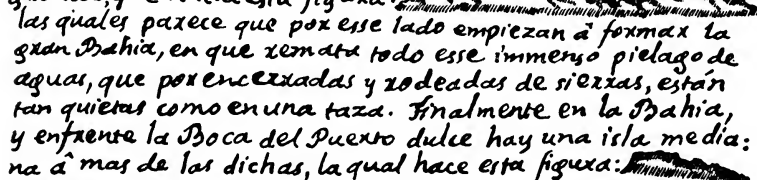 las quales parece que por esse lado empiezan â formar la
gran Bahia, en que remata todo esse immenso pielago de
aguas, que por encerradas y rodeadas de sierras, están
tan quietas como en una taza. Finalmente en la Bahia,
y enfrente la Boca del Puerto dulce hay una isla media:
na â mas de las dichas, la qual hace esta figura: